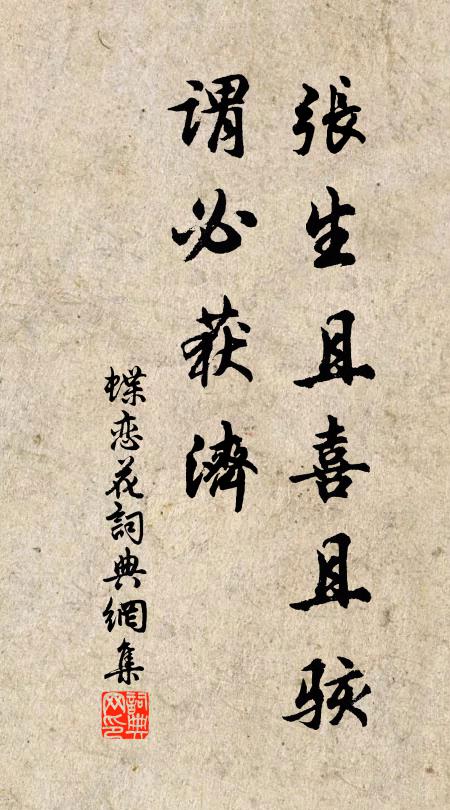 張生且喜且骇
謂必获濟
蝶恋花詞典網集
詞典网印